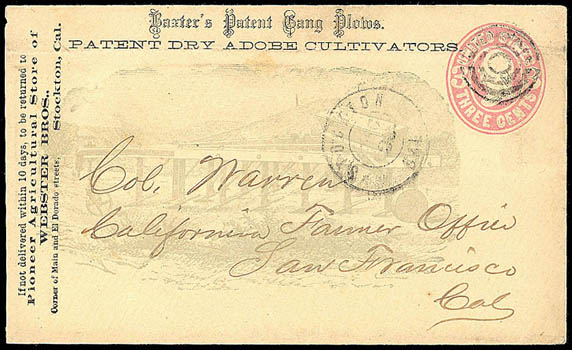 Baxter's Patent Gang Plows.
PATENT DRY ADOBE CULTIVATORS.
If not delivered within 10 days, to be returned to
Pioneer Agricultural Store of
WEBSTER BROS.,
Corner of Main and El Dorado streets, Stockton, Cal.
THREE CENTS
STOCKTON
CAL
Col. Warren
California Farmer Office
San Francisco
Cal